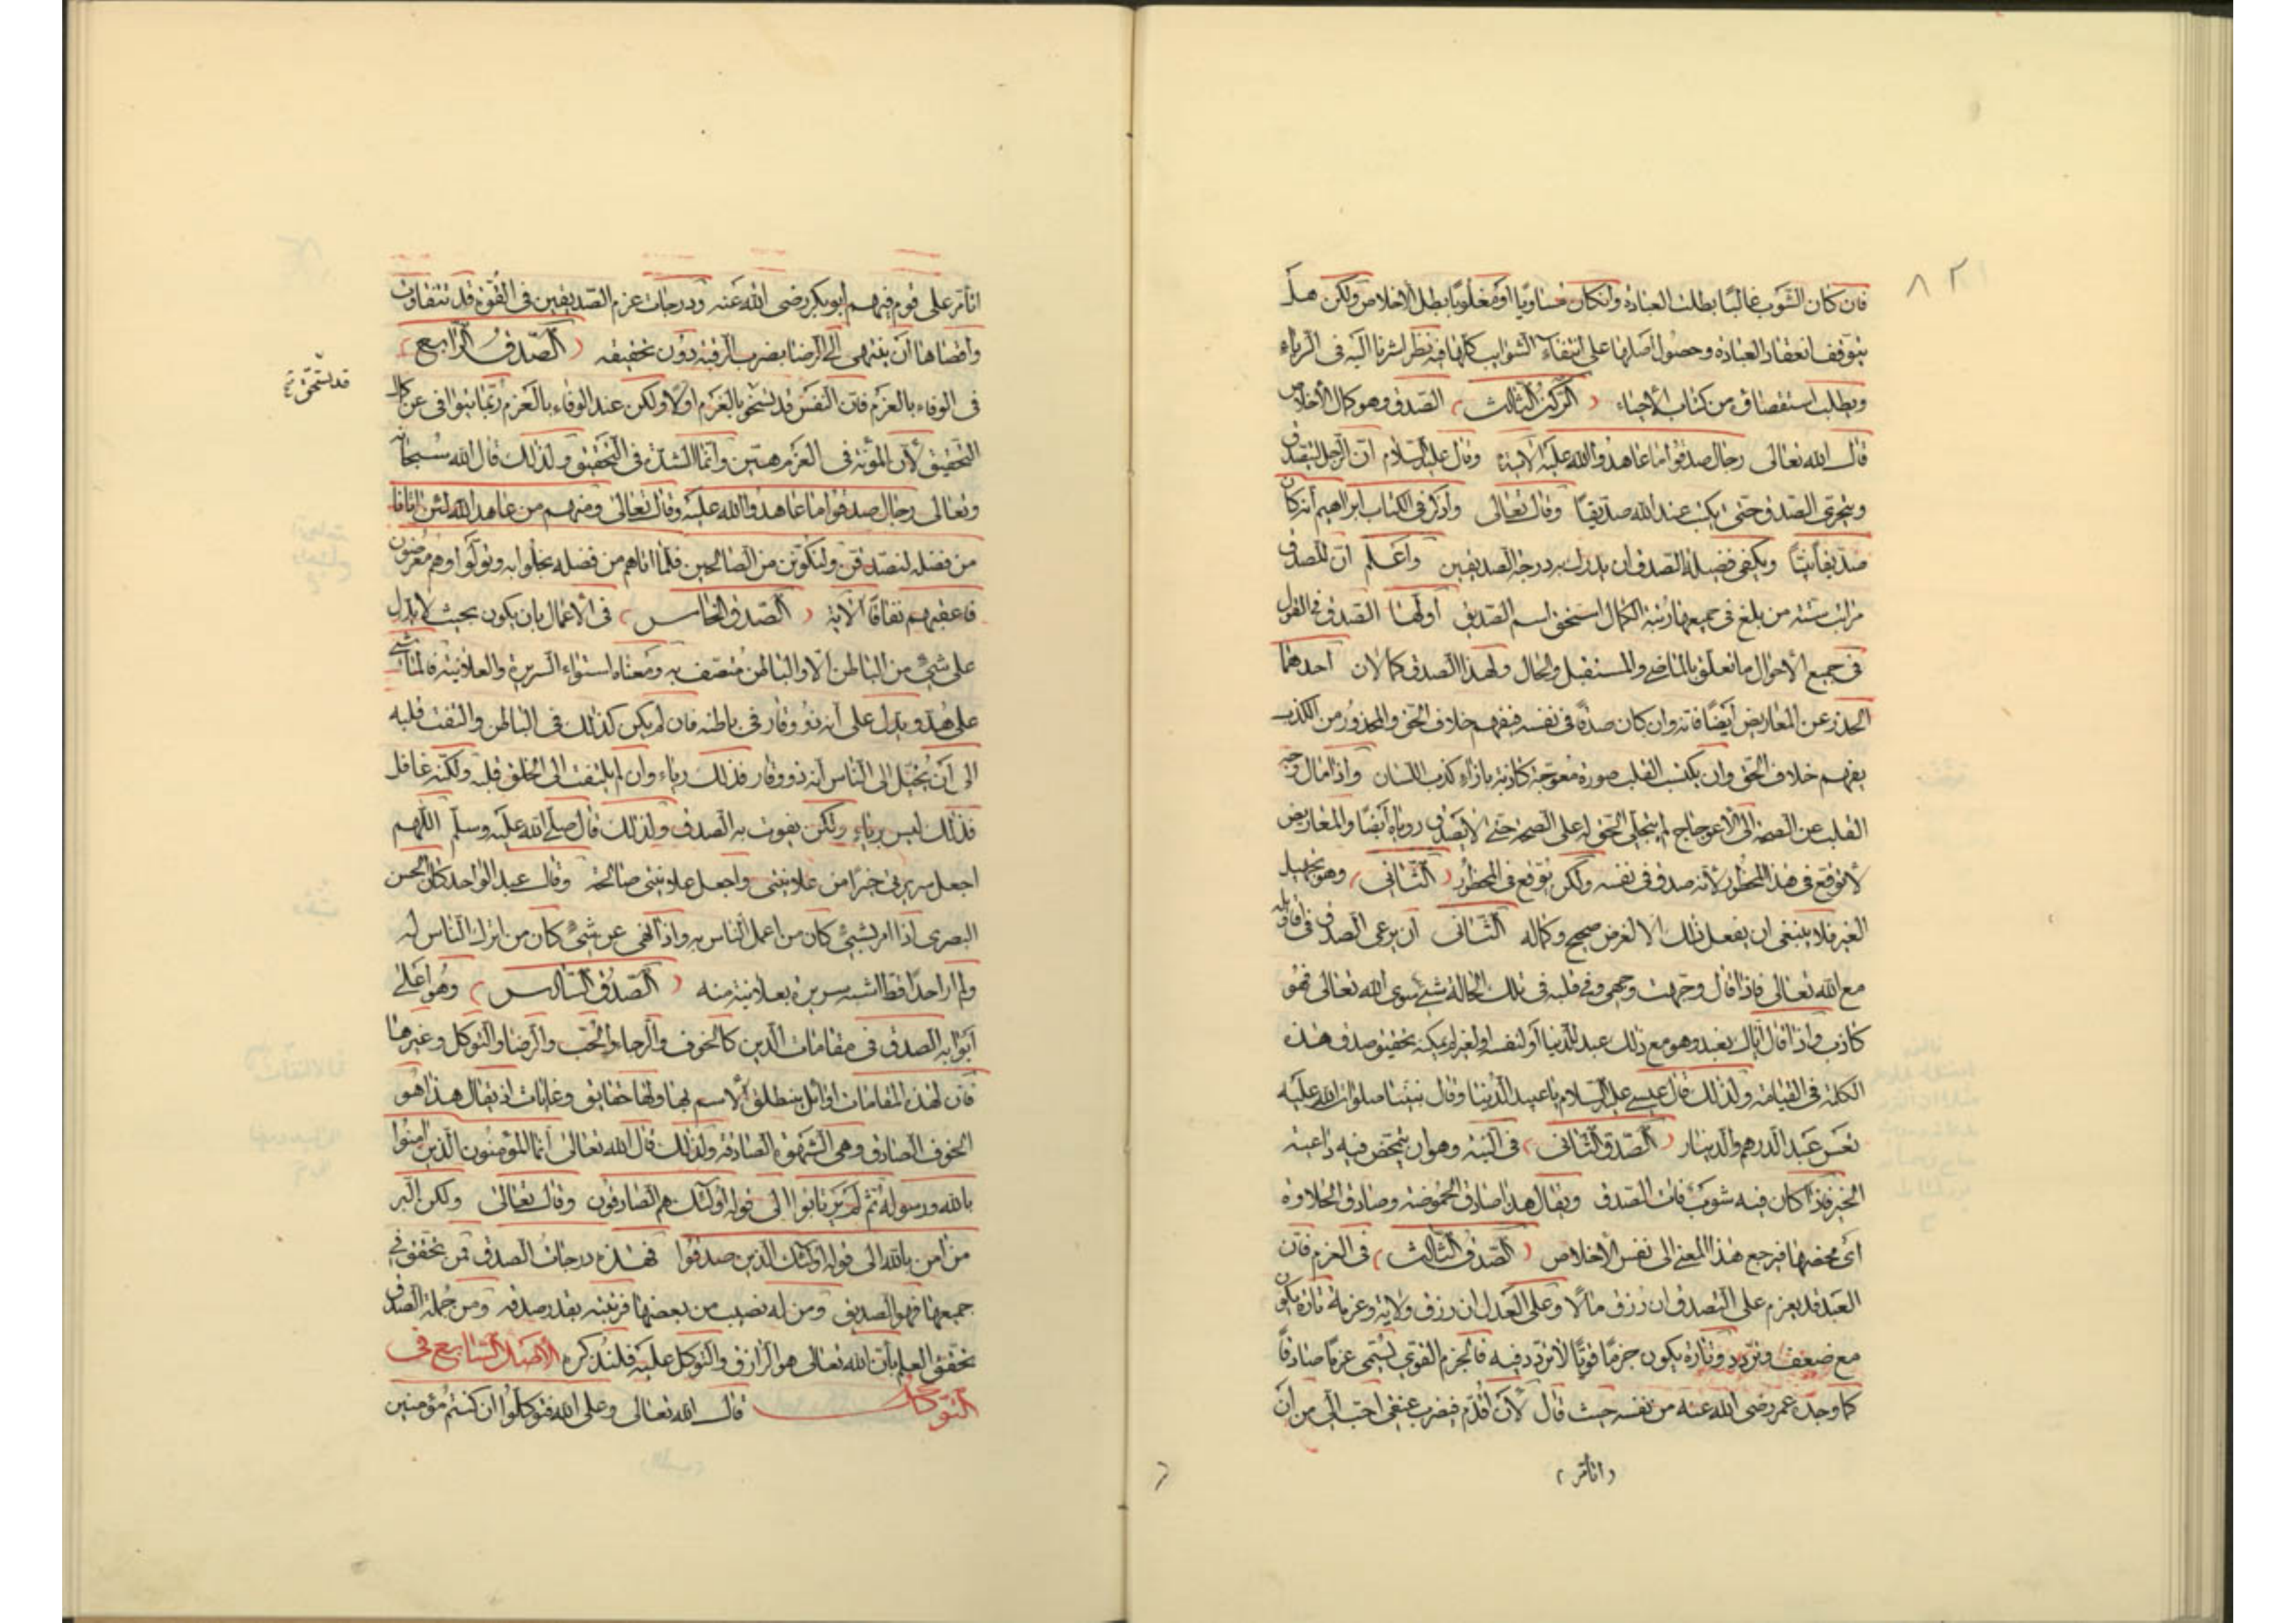 ٨٢
فان كان الشوب غالبًا بطلت العبادة وان كان مساويًا او مغلوبًا بطل الاخلاص ولكن هل
يتوقف انعقاد العبادة وحصول اصلها على انتفاء الشوايب كلها فيه نظر اشرنا اليه فى الرياء
ويطلب استقصاؤه من كتاب الأحياء (الركن الثالث) الصدق وهو كمال الأخلاص
قال الله تعالى رجال صدقوا ما عاهدوا الله عليه الآية وقال عليه السلام ان الرجل ليصدق
ويتحرى الصدق حتى يكتب عند الله صديقًا وقال تعالى واذكر فى الكتاب ابراهيم انه كان
صديقًا نبيًا ويكفى فضيلة الصدق ان يدرك به درجة الصديقين واعلم ان للصدق
مراتب ستة من بلغ فى جميعها رتبة الكمال استحق اسم الصديق أولها الصدق فى القول
فى جميع الأحوال ما تعلق بالماضى والمستقبل والحال ولهذا الصدق كمالان احدهما
الحذر عن المعاريض أيضًا فانه وان كان صدقًا فى نفسه فيفهم خلاف الحق والمحذور من الكذب
يفهم خلاف الحق وان يكتسب القلب صورة معوجة كاذبة بازاء كذب اللسان واذا مال وجه
القلب عن الصحة الى الاعوجاج لم يتجلى الحق له على الصحة حتى لا يصدق روياه أيضًا والمعاريض
لا توقع فى هذا المحظور لأنه صدق فى نفسه ولكن توقع فى المحظور (الثانى) وهو تجهيل
الغير فلا ينبغى ان يفعل ذلك الا لغرض صحيح وكماله الثانى ان يرعى الصدق فى اقاويله
مع الله تعالى فاذا قال وجهت وجهى وفى قلبه فى تلك الحالة شئ سوى الله تعالى فهو
كاذب واذا قال اياك نعبد وهو مع ذلك عبد الدنيا أو لنفسه او لغيره لم يمكنه تحقيق صدق هذه
الكلمة فى القيامة ولذلك قال عيسى عليه السلام يا عبيد الدنيا وقال نبينا صلوات الله عليه
تعس عبد الدرهم والدينار (الصدق الثانى) فى النية وهو ان يتمحض فيه داعية
الخير فاذا كان فيه شوب فات الصدق ويقال هذا صادق الحموضة وصادق الحلاوة
اى محضها فيرجع هذا المعنى الى نفس الأخلاص (الصدق الثالث) فى العزم فان
العبد قد يعزم على التصدق ان رزق مالًا وعلى العدل ان رزق ولاية وعزمه تارة يكون
مع ضعف وتردد وتارة يكون جزمًا قويًا لا تردد فيه فالجزم القوى يسمى عزمًا صادقًا
كما وجده عمر رضى الله عنه من نفسه حيث قال لأن اقدم فيضرب عنقى احب الى من ان
(اتأمر)
اتأمر على قوم فيهم أبو بكر رضى الله عنه ودرجات عزم الصديقين فى القوة قد تتفاوت
واقصاها ان ينتهى الى الرضا بضرب الرقبة دون تحقيقه (الصدق الرابع)
فى الوفاء بالعزم فان النفس قد تسخو بالعزم اولًا ولكن عند الوفاء بالعزم ربما يتوانى عن كمال
التحقيق لأن المؤنة فى العزم هين وانما الشدة فى التحقيق ولذلك قال الله سبحانه
وتعالى رجال صدقوا ما عاهدوا الله عليه وقال تعالى ومنهم من عاهد الله لئن اتانا
من فضله لنصدقن ولنكونن من الصالحين فلما اتاهم من فضله بخلوا به وتولوا وهم معرضون
فاعقبهم نفاقًا الآية (الصدق الخامس) فى الأعمال بان يكون بحيث لا يدل
على شئ من الباطن الا والباطن متصف به ومعناه استواء السريرة والعلانية فالماشى
على هدو يدل على أنه ذو وقار فى باطنه فان لم يكن كذلك فى الباطن والتفت قلبه
الى أن يخيل الى الناس انه ذو وقار فذلك رياء وان لم يلتفت الى الخلق قلبه ولكنه غافل
فذلك ليس برياء ولكن يفوت به الصدق ولذلك قال صلى الله عليه وسلم اللهم
اجعل سريرتى خيرًا من علانيتى واجعل علانيتى صالحة وقال عبد الواحد كان الحسن
البصرى اذا امر بشئ كان من اعمل الناس به واذا نهى عن شئ كان من اترك الناس له
ولم ار احدًا قط اشبه سريرة بعلانية منه (الصدق السادس) وهو اعلى
ابوابه الصدق فى مقامات الدين كالخوف والرجاء والحب والرضا والتوكل وغيرها
فان لهذه المقامات اوائل ينطلق الاسم بها ولها حقايق وغايات اذ يقال هذا هو
الخوف الصادق وهى الشهوة الصادقة ولذلك قال الله تعالى انما المؤمنون الذين امنوا
بالله ورسوله ثم لم يرتابوا الى قوله اولئك هم الصادقون وقال تعالى ولكن البر
من امن بالله الى قوله اولئك الذين صدقوا فهذه درجات الصدق فمن تحقق فى
جميعها فهو الصديق ومن له نصيب من بعضها فرتبته بقدر صدقه ومن جملة الصدق
تحقق العلم بأن الله تعالى هو الرازق والتوكل عليه فلنذكره الأصل السابع فى
التوكل قال الله تعالى وعلى الله فتوكلوا ان كنتم مؤمنين